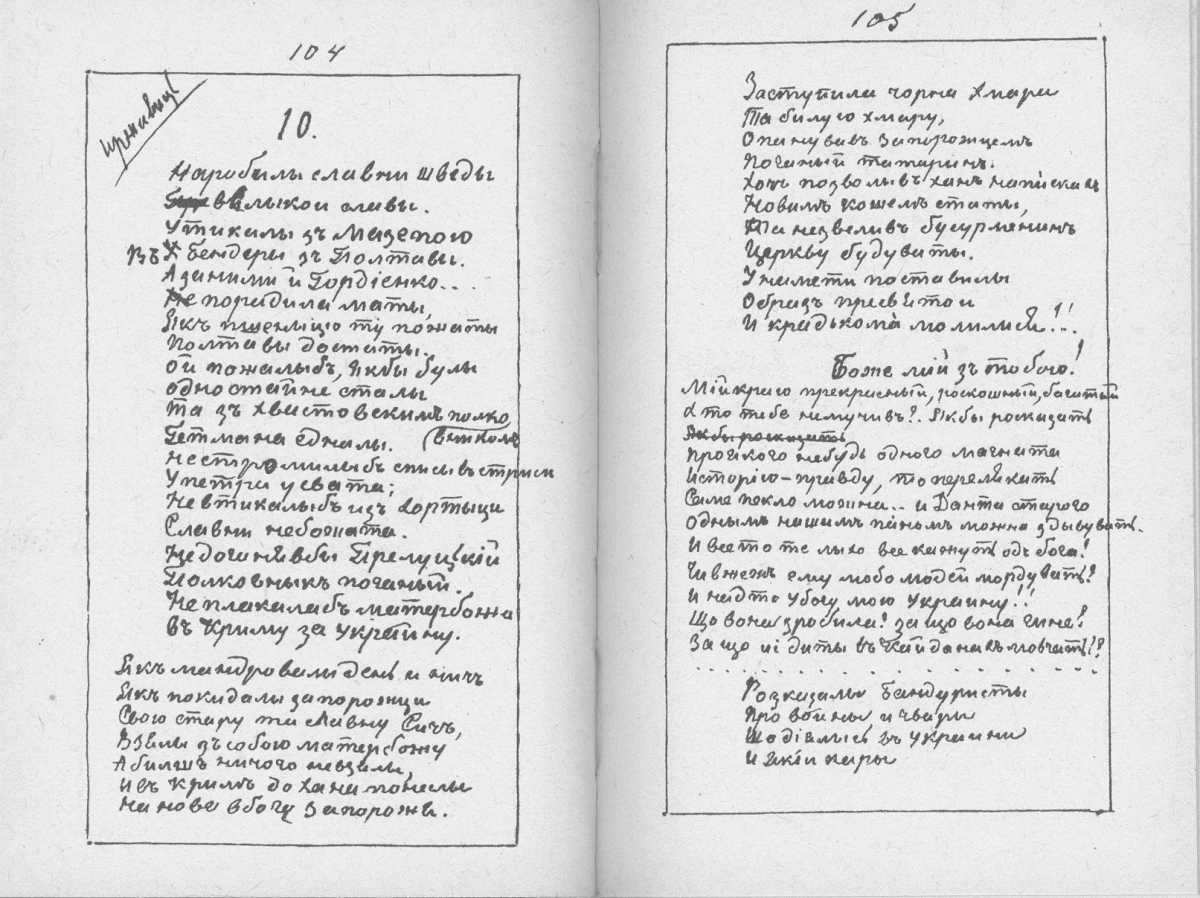 104
иржавиця
10.
Наробылы славни шведы
великои славы.
Утикалы зъ Мазепою
Въ Бендеры зъ Полтавы.
А заними й Гордіенко...
Не порадила маты,
Якъ пшеницю ту пожаты
Полтавы достаты.
Ой пожалыбъ, Якбы булы
одностайне сталы
Та зъ хвастовскимъ полко
вныкомъ
Гетмана едналы.
Нестромилыбъ списы въ стриси
У петра у свата;
Невтикалыбъ изъ хортыци
Славни небожата.
Недогинявбы Прелуцькій
Полковныкъ поганый.
Неплакалабъ матербожа
въ Криму за Україну.
Якъ мандровали день и ничъ
Якъ покидали запорожци
Свою стару та славну Сичъ,
Взялы зъ собою матербожу
А билшъ ничого невзялы,
И въ Кримъ до Хана понеслы
На нове вбогу Запорожъе.
105
Заступила чорна Хмара
Та билую хмару,
Опанувавъ запорожцемъ
Поганый татаринъ.
Хочъ позволывъ ханъ напіскахъ
Новимъ кошемъ статы,
Та незвеливъ бусурменинъ
Церкву будуваты.
У намети поставилы
Образъ пресвятои
И крадькома молились!!..
Боже мій зъ тобою!
Мій краю прекрасный, роскошный, богатый
Хто тебе немучивъ?. Якбы росказать
Якбы росказать
Проякого небудь одного магната
Исторію-правду, то перелякать
Саме пекло можна.. и Данта старого
Однымъ нашимъ паномъ можна здывувать.
И все то те лыхо все кажуть одъ бога!
Чи вжежъ ему любо людей мордувать?
И надто убогу мою Украину!!
Що вона зробила? за що вона гине?
За що іі диты въ Кайданахъ мовчать!!?
. . . . . . . . . . . . . . . .
Розказалы бандуристы
Про войны и чвары
Що діялись въ Украини
И якіи кары